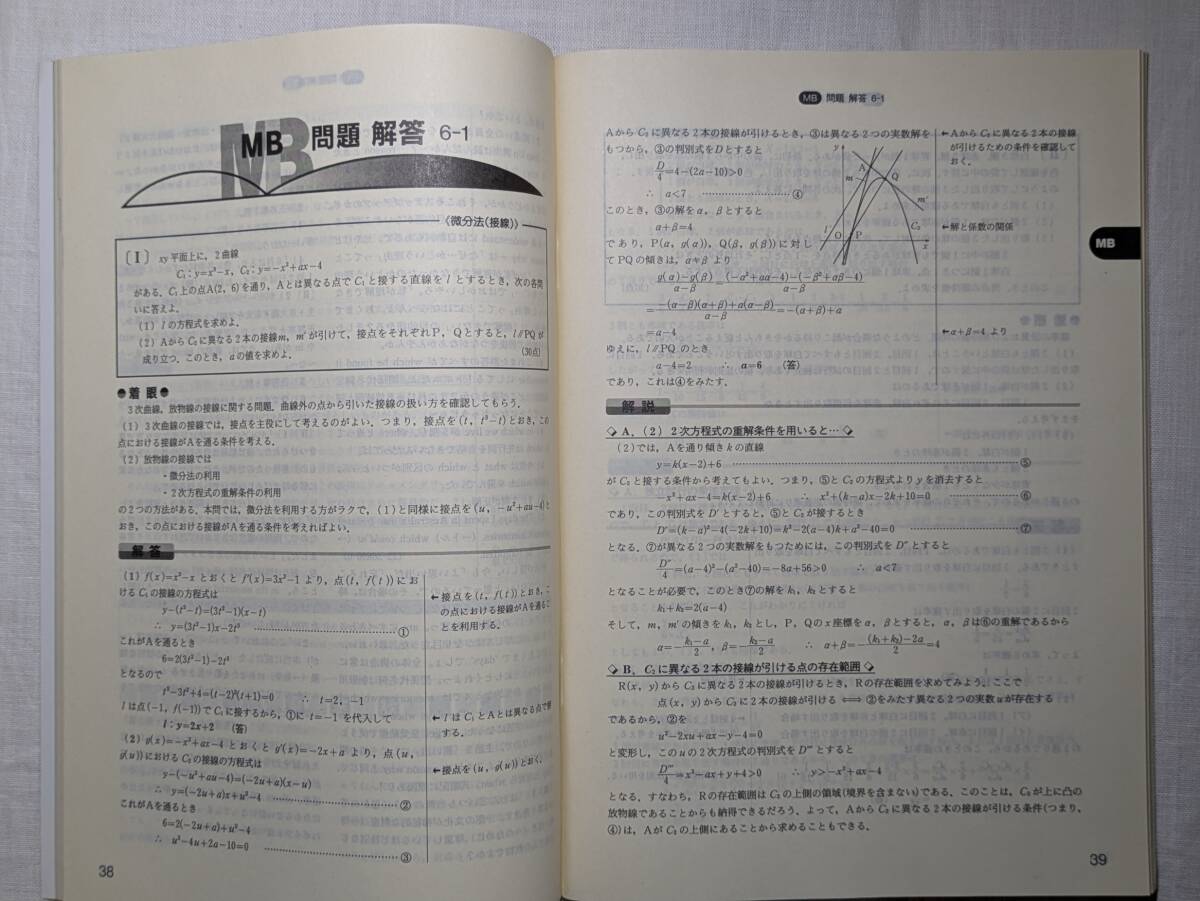 MB 問題 解答 6-1
《微分法(接線)》
〔Ⅰ〕 xy平面上に，2曲線
C₁：y=x³−x，C₂：y=−x²+ax−4
がある．C₁上の点A(2, 6)を通り，Aとは異なる点でC₁と接する直線をlとするとき，次の各問
いに答えよ．
(1) lの方程式を求めよ．
(2) AからC₂に異なる2本の接線m，m′が引けて，接点をそれぞれP，Qとすると，l∥PQが
成り立つ．このとき，aの値を求めよ．
(30点)
●着 眼●
3次曲線，放物線の接線に関する問題．曲線外の点から引いた接線の扱い方を確認してもらう．
(1) 3次曲線の接線では，接点を主役にして考えるのがよい．つまり，接点を(t, t³−t)とおき，この
点における接線がAを通る条件を考える．
(2) 放物線の接線では
・微分法の利用
・2次方程式の重解条件の利用
の2つの方法がある．本問では，微分法を利用する方がラクで，(1)と同様に接点を(u, −u²+au−4)と
おき，この点における接線がAを通る条件を考えればよい．
解 答
(1) f(x)=x³−xとおくとf′(x)=3x²−1より，点(t, f(t))にお
けるC₁の接線の方程式は
y−(t³−t)=(3t²−1)(x−t)
∴ y=(3t²−1)x−2t³ ……①
これがAを通るとき
6=2(3t²−1)−2t³
となるので
t³−3t²+4=(t−2)²(t+1)=0 ∴ t=2, −1
lは点(−1, f(−1))でC₁に接するから，①にt=−1を代入して
l：y=2x+2 (答)
(2) g(x)=−x²+ax−4とおくとg′(x)=−2x+aより，点(u,
g(u))におけるC₂の接線の方程式は
y−(−u²+au−4)=(−2u+a)(x−u)
∴ y=(−2u+a)x+u²−4 ……②
これがAを通るとき
6=2(−2u+a)+u²−4
∴ u²−4u+2a−10=0 ……③
←接点を(t, f(t))とおき，こ
の点における接線がAを通るこ
とを利用する．
←lはC₁とAとは異なる点で接
する．
←接点を(u, g(u))とおく．
38
MB 問題 解答 6-1
AからC₂に異なる2本の接線が引けるとき，③は異なる2つの実数解を
もつから，③の判別式をDとすると
D/4=4−(2a−10)>0
∴ a<7 ……④
このとき，③の解をα，βとすると
α+β=4
であり，P(α, g(α))，Q(β, g(β))に対し
てPQの傾きは，α≠βより
(g(α)−g(β))/(α−β)=((−α²+aα−4)−(−β²+aβ−4))/(α−β)
=(−(α−β)(α+β)+a(α−β))/(α−β)=−(α+β)+a
=a−4
ゆえに，l∥PQのとき
a−4=2 ∴ a=6 (答)
であり，これは④をみたす．
y
A
Q
m
m′
l
O
P
C₂
x
←AからC₂に異なる2本の接線
が引けるための条件を確認して
おく．
←解と係数の関係
←α+β=4より
MB
解 説
◇A．(2) 2次方程式の重解条件を用いると…◇
(2)では，Aを通り傾きkの直線
y=k(x−2)+6 ……⑤
がC₂と接する条件から考えてもよい．つまり，⑤とC₂の方程式よりyを消去すると
−x²+ax−4=k(x−2)+6 ∴ x²+(k−a)x−2k+10=0 ……⑥
であり，この判別式をD′とすると，⑤とC₂が接するとき
D′=(k−a)²−4(−2k+10)=k²−2(a−4)k+a²−40=0 ……⑦
となる．⑦が異なる2つの実数解をもつためには，この判別式をD″とすると
D″/4=(a−4)²−(a²−40)=−8a+56>0 ∴ a<7
となることが必要で，このとき⑦の解をk₁，k₂とすると
k₁+k₂=2(a−4)
そして，m，m′の傾きをk₁，k₂とし，P，Qのx座標をα，βとすると，α，βは⑥の重解であるから
α=−(k₁−a)/2，β=−(k₂−a)/2 ∴ α+β=−((k₁+k₂)−2a)/2=4
◇B．C₂に異なる2本の接線が引ける点の存在範囲◇
R(x, y)からC₂に異なる2本の接線が引けるとき，Rの存在範囲を求めてみよう．ここで
点(x, y)からC₂に2本の接線が引ける⟺②をみたす異なる2つの実数uが存在する
であるから，②を
u²−2xu+ax−y−4=0
と変形し，このuの2次方程式の判別式をD‴とすると
D‴/4=x²−ax+y+4>0 ∴ y>−x²+ax−4
となる．すなわち，Rの存在範囲はC₂の上側の領域(境界を含まない)である．このことは，C₂が上に凸の
放物線であることからも納得できるだろう．よって，AからC₂に異なる2本の接線が引ける条件(つまり，
④)は，AがC₂の上側にあることから求めることもできる．
39